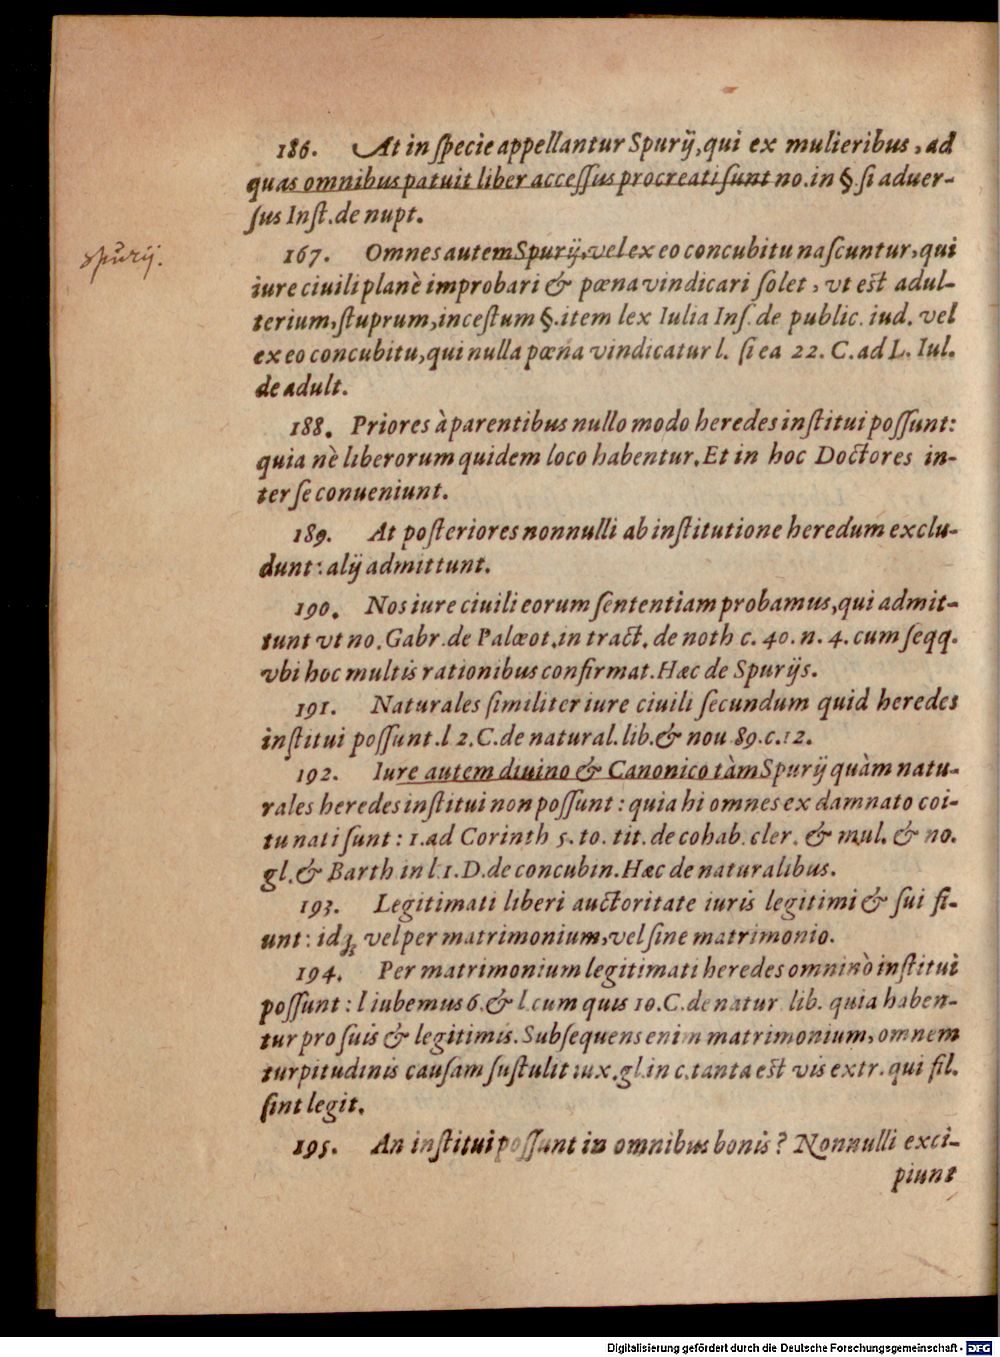 186. At in specie appellantur Spurij, qui ex mulieribus, ad
quas omnibus patuit liber accessus procreati sunt no. in §. si aduer-
sus Inst. de nupt.
spurij.
167. Omnes autem Spurij, vel ex eo concubitu nascuntur, qui
iure ciuili planè improbari & pœna vindicari solet, vt est adul-
terium, stuprum, incestum §. item lex Iulia Ins. de public. iud. vel
ex eo concubitu, qui nulla pœna vindicatur l. si ea 22. C. ad L. Iul.
de adult.
188. Priores à parentibus nullo modo heredes institui possunt:
quia nè liberorum quidem loco habentur. Et in hoc Doctores in-
ter se conueniunt.
189. At posteriores nonnulli ab institutione heredum exclu-
dunt: alij admittunt.
190. Nos iure ciuili eorum sententiam probamus, qui admit-
tunt vt no. Gabr. de Palæot. in tract. de noth c. 40. n. 4. cum seqq.
vbi hoc multis rationibus confirmat. Hæc de Spurijs.
191. Naturales similiter iure ciuili secundum quid heredes
institui possunt. l 2. C. de natural. lib. & nou 89. c. 12.
192. Iure autem diuino & Canonico tàm Spurij quàm natu-
rales heredes institui non possunt: quia hi omnes ex damnato coi-
tu nati sunt: 1. ad Corinth 5. to. tit. de cohab. cler. & mul. & no.
gl. & Barth in l. 1. D. de concubin. Hæc de naturalibus.
193. Legitimati liberi auctoritate iuris legitimi & sui fi-
unt: idq; vel per matrimonium, vel sine matrimonio.
194. Per matrimonium legitimati heredes omninò institui
possunt: l iubemus 6. & l. cum quis 10. C. de natur lib. quia haben-
tur pro suis & legitimis. Subsequens enim matrimonium, omnem
turpitudinis causam sustulit iux. gl. in c. tanta est vis extr. qui fil.
sint legit.
195. An institui possunt in omnibus bonis? Nonnulli exci-
piunt
Digitalisierung gefördert durch die Deutsche Forschungsgemeinschaft - DFG